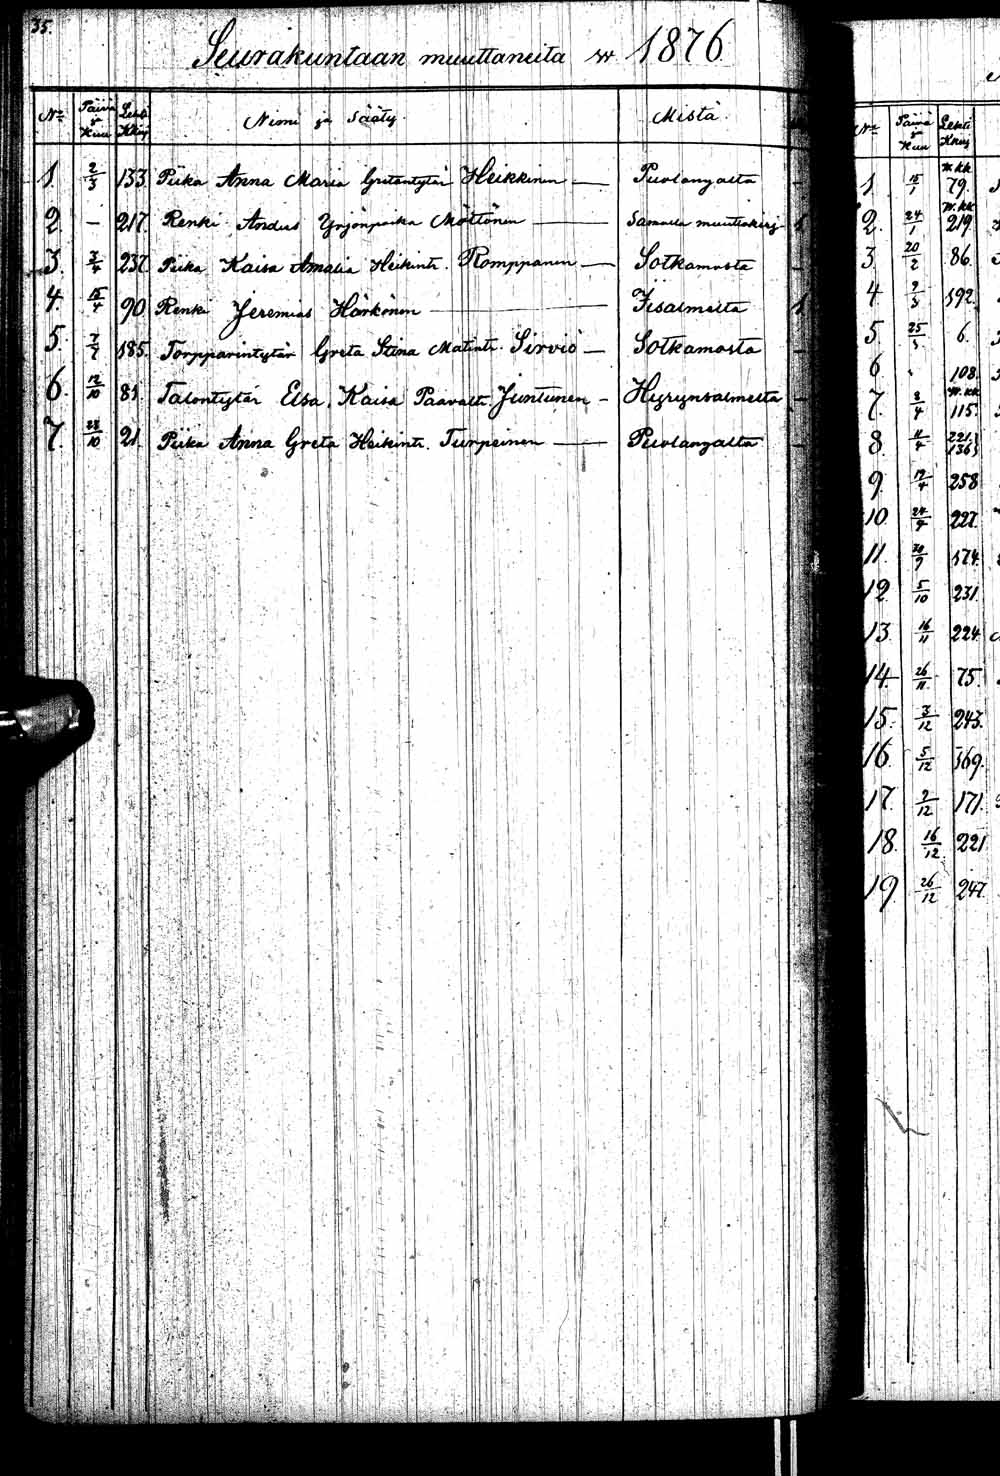 35.
Seurakuntaan muuttaneita w 1876
No Päivä & Kuu Lehti Kkirj Nimi ja Sääty. Mistä.
1. 2/3 133 Piika Anna Maria Gretantytär Heikkinen — Puolangalta —
2. – 217. Renki Anders Yrjönpoika Möttönen — Samalla muuttokirj 1
3. 3/4 237. Piika Kaisa Amalia Heikintr. Romppanen — Sotkamosta —
4. 15/4 90 Renki Jeremias Härkönen — Iisalmelta 1
5. 7/7 185. Torpparintytär Greta Stina Matintr. Sirviö — Sotkamosta —
6. 12/10 81. Talontytär Elsa Kaisa Paavaltr. Juntunen – Hyrynsalmelta –
7. 28/10 21. Piika Anna Greta Heikintr. Turpeinen — Puolangalta –
No Päivä & Kuu Lehti Kkirj
1 15/1 M.kk 79.
2. 24/1 M.kk 219
3. 20/2 86.
4 9/3 192.
5 25/3 6.
6 108.
7. 8/4 M.kk 115.
8. 11/4 221. 136
9. 19/4 258
10 24/9 227.
11. 30/9 174.
12. 5/10 231.
13. 16/11 224.
14. 26/11 75.
15. 3/12 243.
16 5/12 369.
17. 9/12 171.
18. 16/12 221
19. 26/12 247.